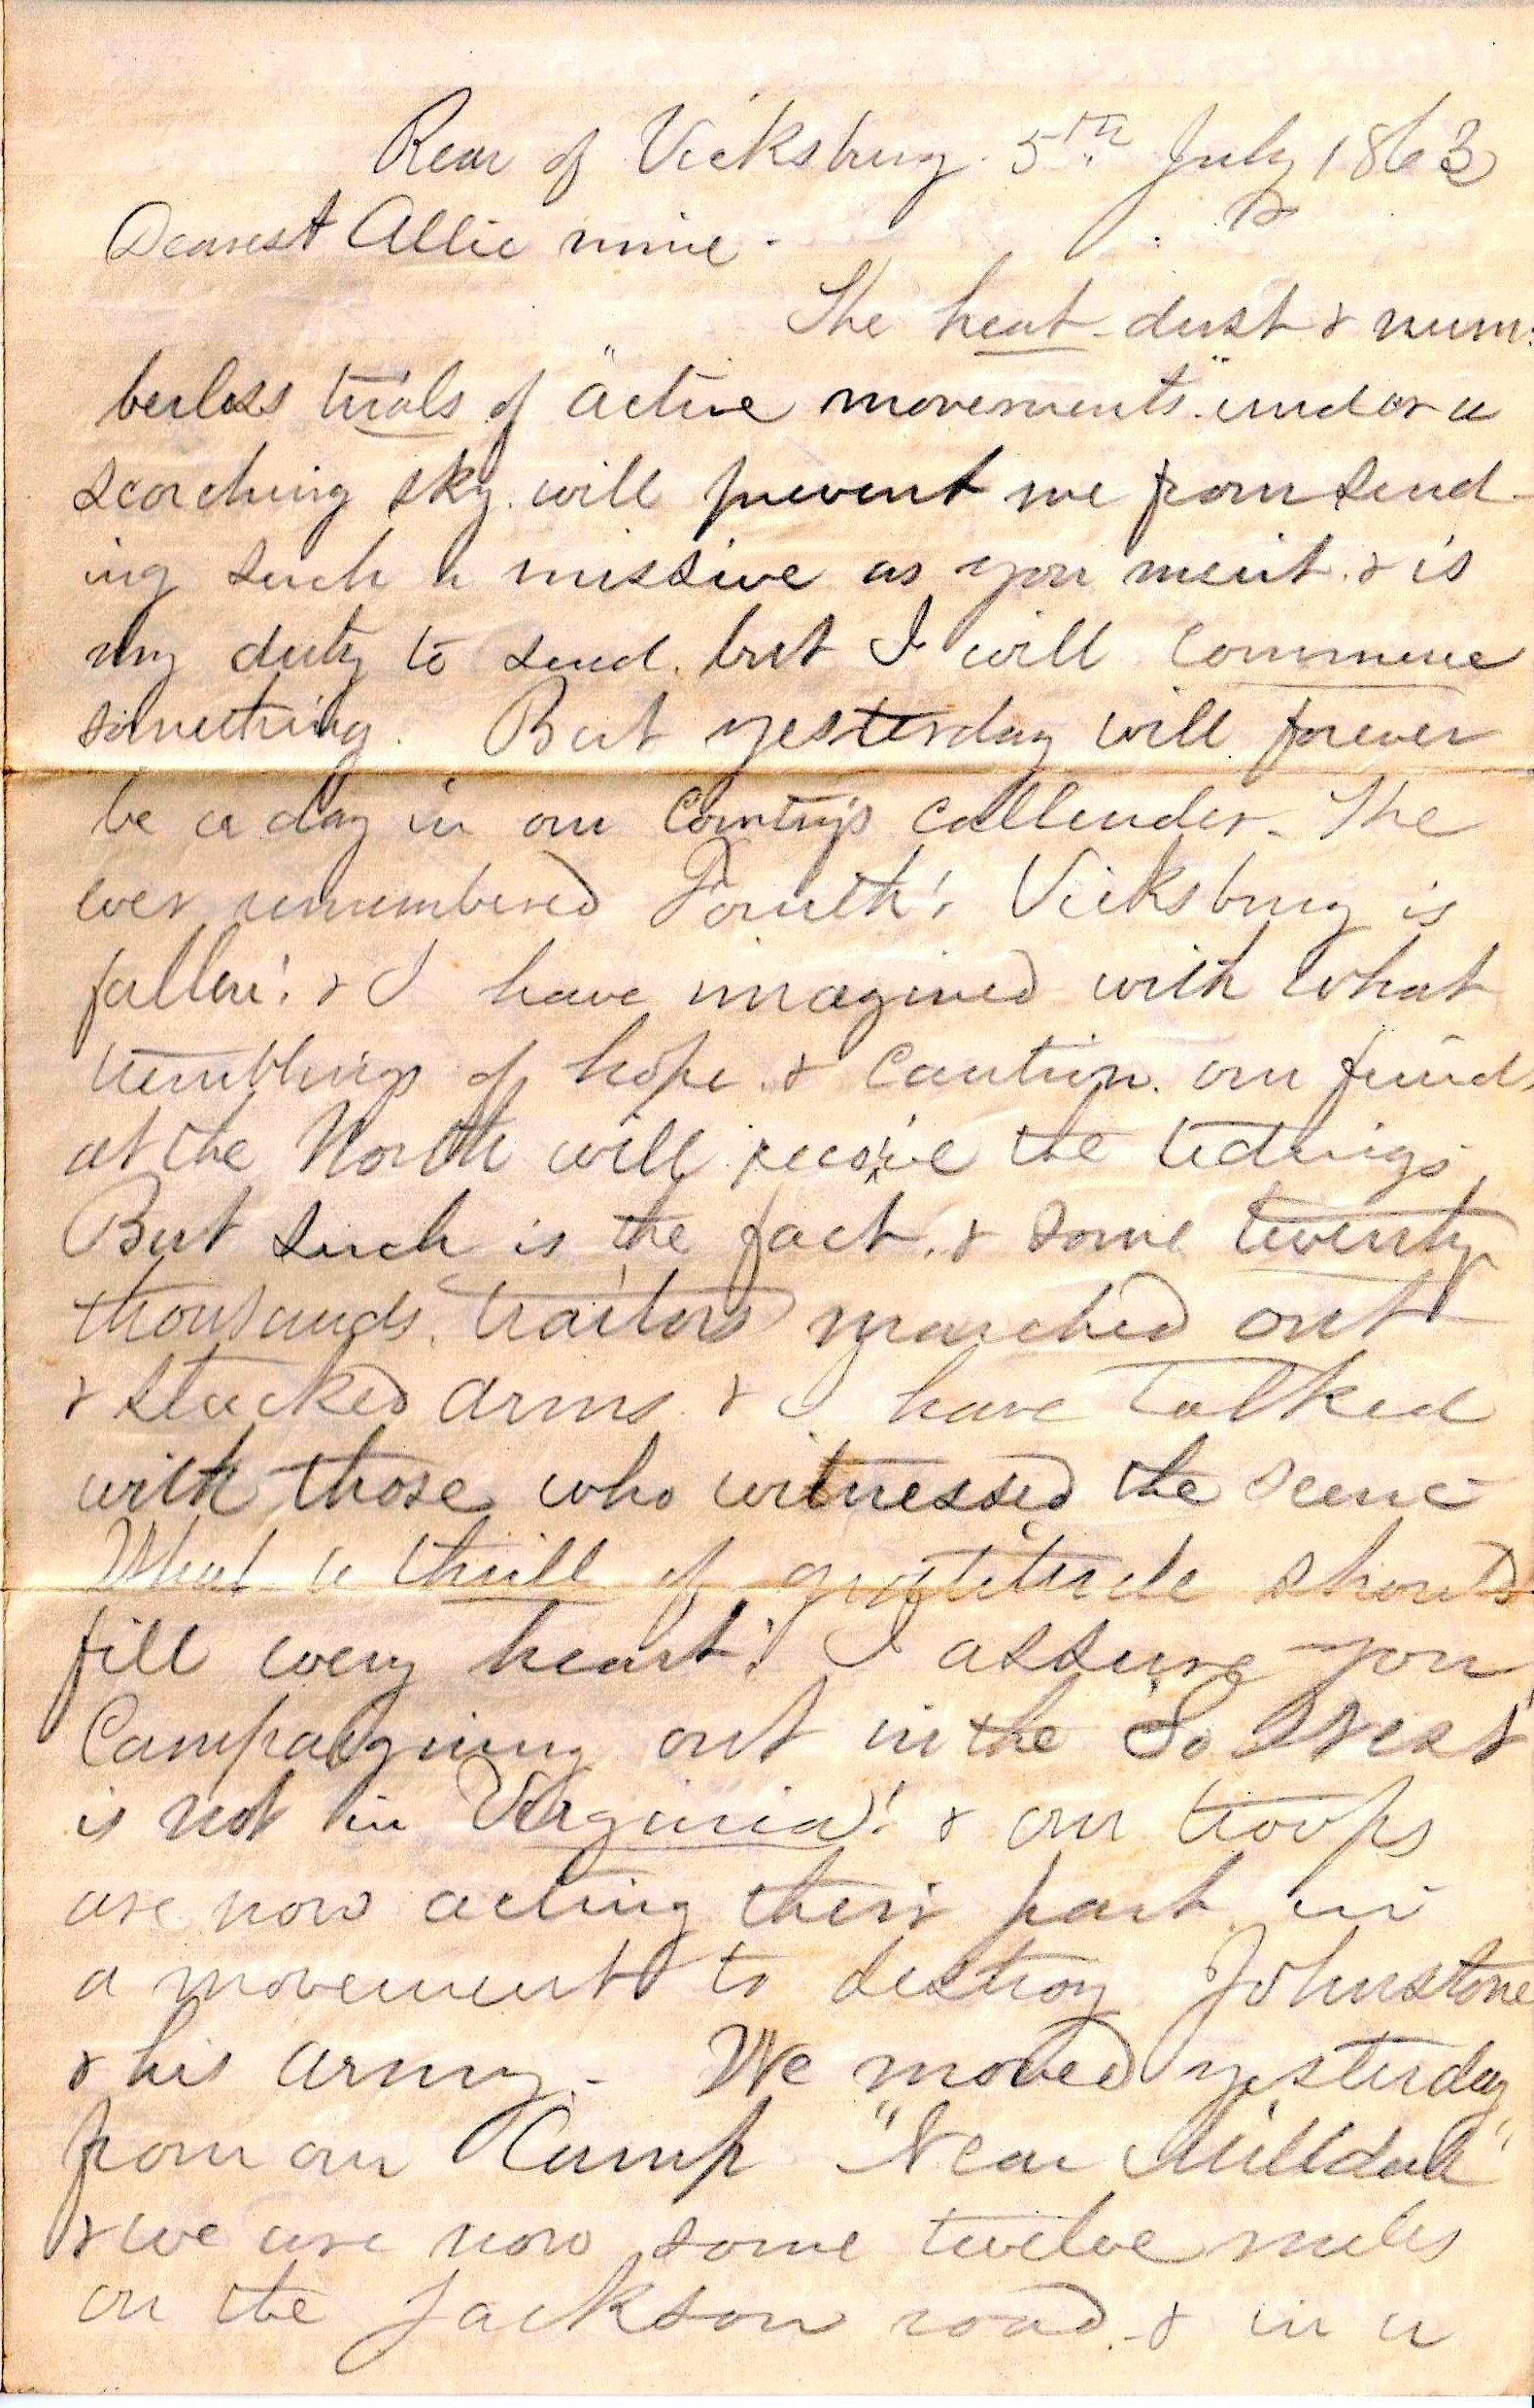 Rear of Vicksburg. 5th July 1863
Dearest Allie mine -
The heat - dust & num:
berless trials of "active movements" under a
scorching sky. will prevent me from send-
ing such a missive as you merit. & is
my duty to send. but I will commence
something. But yesterday will forever
be a day in our Country's callender - The
ever remembered Fourth! Vicksburg is
fallen! & I have imagined with what
tremblings of hope & caution. our friends
at the North will receive the tidings -
But such is the fact. & some twenty
thousands traitors marched out
& stacked arms. & I have talked
with those who witnessed the scene -
What a thrill of gratitude should
fill every heart! I assure you
Campaigning out in the So West
is not in Virginia! & our troops
are now acting their part in
a movement to destroy Johnstone
& his army. - We moved yesterday
from our Camp "Near Milldale"
& we are now some twelve miles
on the Jackson road. & in a